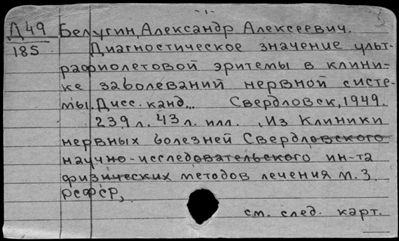 Д49 Белугин, Александр Алексеевич.
185 Диагностическое значение ульт-
рафиолетовой эритемы в клини-
ке заболеваний нервной систе-
мы. Дисс. канд... Свердловск, 1949.
239 л. 43 л. илл. Из Клиники
нервных болезней Свердловского
научно-исследовательского ин-та
физических методов лечения м.з.
РСФСР,
см. след. карт.